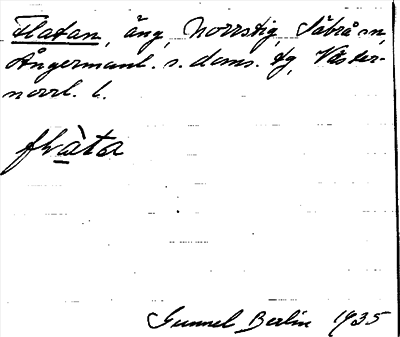 Flatan, äng, Norrstig, Säbrå sn,
Ångermanl. s. doms. tg, Väster-
norrl. l.
flàta
Gunnel Berlin 1935